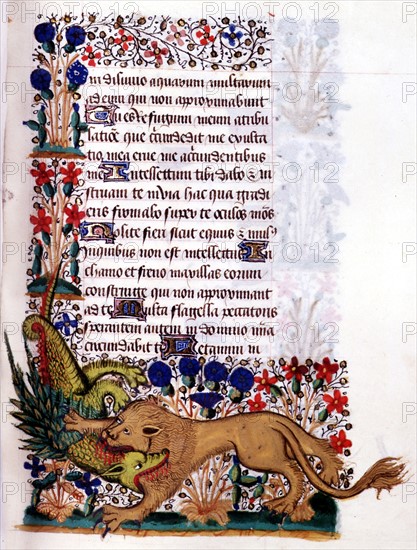 in diluuio aquarum multarum
ad eum non approximabunt
Tu es refugium meum a tribu
latione que circumdedit me exulta
tio mea erue me a circumdantibus
me Intellectum tibi dabo &
instruam te in via hac qua gradi
eris firmabo super te oculos meos
Nolite fieri sicut equus & mul
quibus non est intellectus In
chamo et freno maxillas eorum
constringe qui non approximant
ad te Multa flagella peccatoris
sperantem autem in domino mia
circumdabit Letamini in